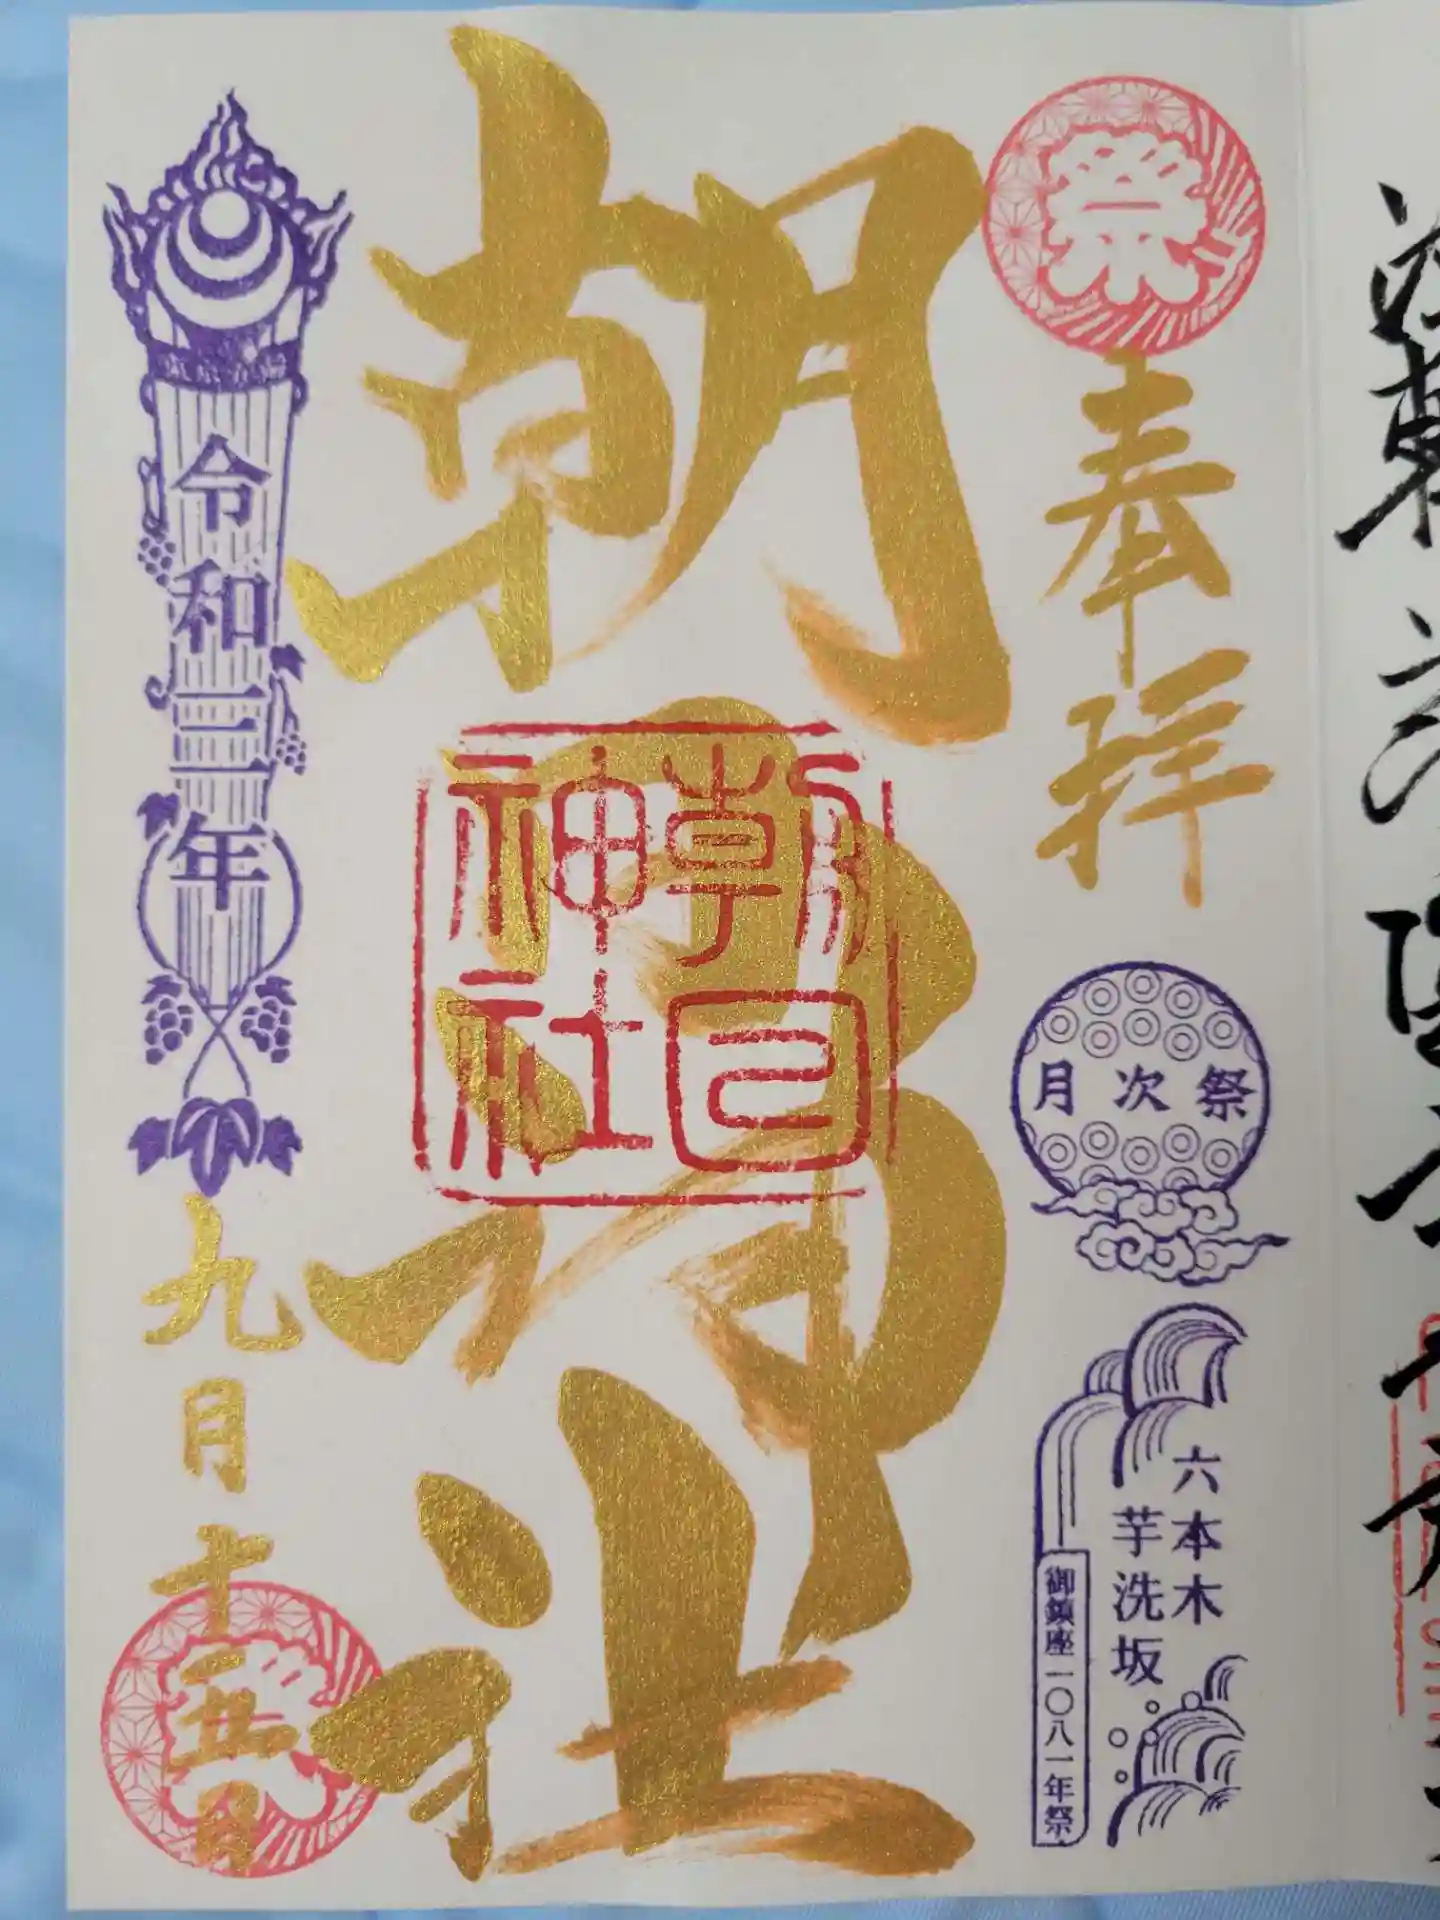 祭
奉拝
月次祭
六本木
芋洗坂
御鎮座一〇八一年祭
朝日神社
朝日
神社
令和三年
九月十五日
祭